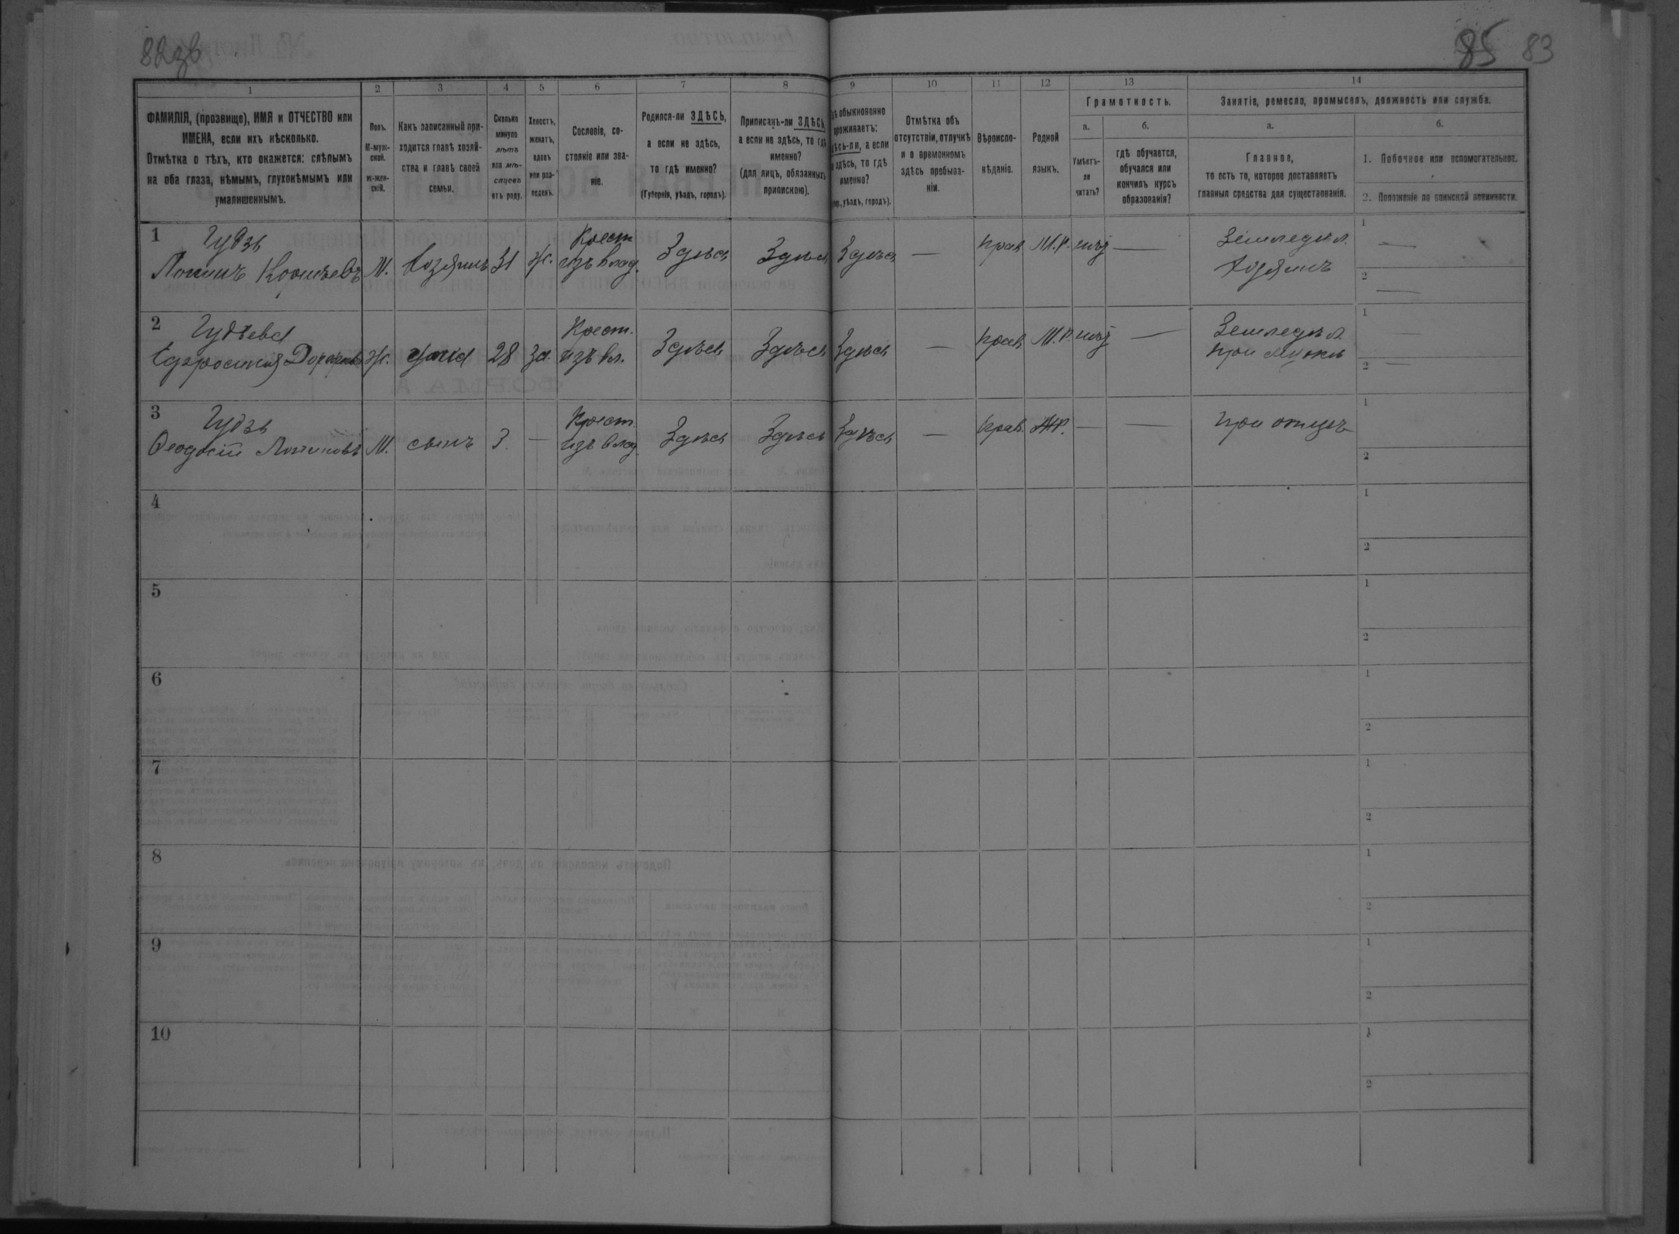 82 об
85 83
1 2 3 4 5 6 7 8 9 10 11 12 13 14
ФАМИЛІЯ, (прозвище), ИМЯ и ОТЧЕСТВО или
ИМЕНА, если ихъ нѣсколько.
Отмѣтка о тѣхъ, кто окажется: слѣпымъ
на оба глаза, нѣмымъ, глухонѣмымъ или
умалишеннымъ.
Полъ.
М-муж-
ской.
Ж-жен-
скій.
Какъ записанный при-
ходится главѣ хозяй-
ства и главѣ своей
семьи.
Сколько
минуло
лѣтъ
или мѣ-
сяцевъ
отъ роду.
Холостъ,
женатъ,
вдовъ
или раз-
веденъ.
Сословіе, со-
стояніе или зва-
ніе.
Родился-ли ЗДѢСЬ,
а если не здѣсь,
то гдѣ именно?
(Губернія, уѣздъ, городъ).
Приписанъ-ли ЗДѢСЬ,
а если не здѣсь, то гдѣ
именно?
(для лицъ, обязанныхъ
припискою).
обыкновенно
проживаетъ:
здѣсь-ли, а если
не здѣсь, то гдѣ
именно?
уѣздъ, городъ).
Отмѣтка объ
отсутствіи, отлучкѣ
и о временномъ
здѣсь пребыва-
ніи.
Вѣроиспо-
вѣданіе.
Родной
языкъ.
Грамотность.
а.
Умѣетъ-
ли
читать?
б.
гдѣ обучается,
обучался или
кончилъ курсъ
образованія?
Занятіе, ремесло, промыселъ, должность или служба.
а.
Главное,
то есть то, которое доставляетъ
главныя средства для существованія.
б.
1. Побочное или вспомогательное.
2. Положеніе по воинской повинности.
1 Гудзь Крест. Земледѣл.
М. Хозяинъ 31 ж. изъ влад. Здѣсь Здѣсь Здѣсь — Прав. М.Р. нѣтъ — Хозяинъ
1 —
2 —
2 Крест. Земледѣл.
Ж. жена 28 за. изъ вл. Здѣсь Здѣсь Здѣсь — Прав. М.Р. нѣтъ — при мужѣ
1 —
2 —
3 Гудзь Крест.
Феодосій М. сынъ 3 — изъ влад. Здѣсь Здѣсь Здѣсь — Прав. М.Р. — — при отцѣ
1
2
4
1
2
5
1
2
6
1
2
7
1
2
8
1
2
9
1
2
10
1
2